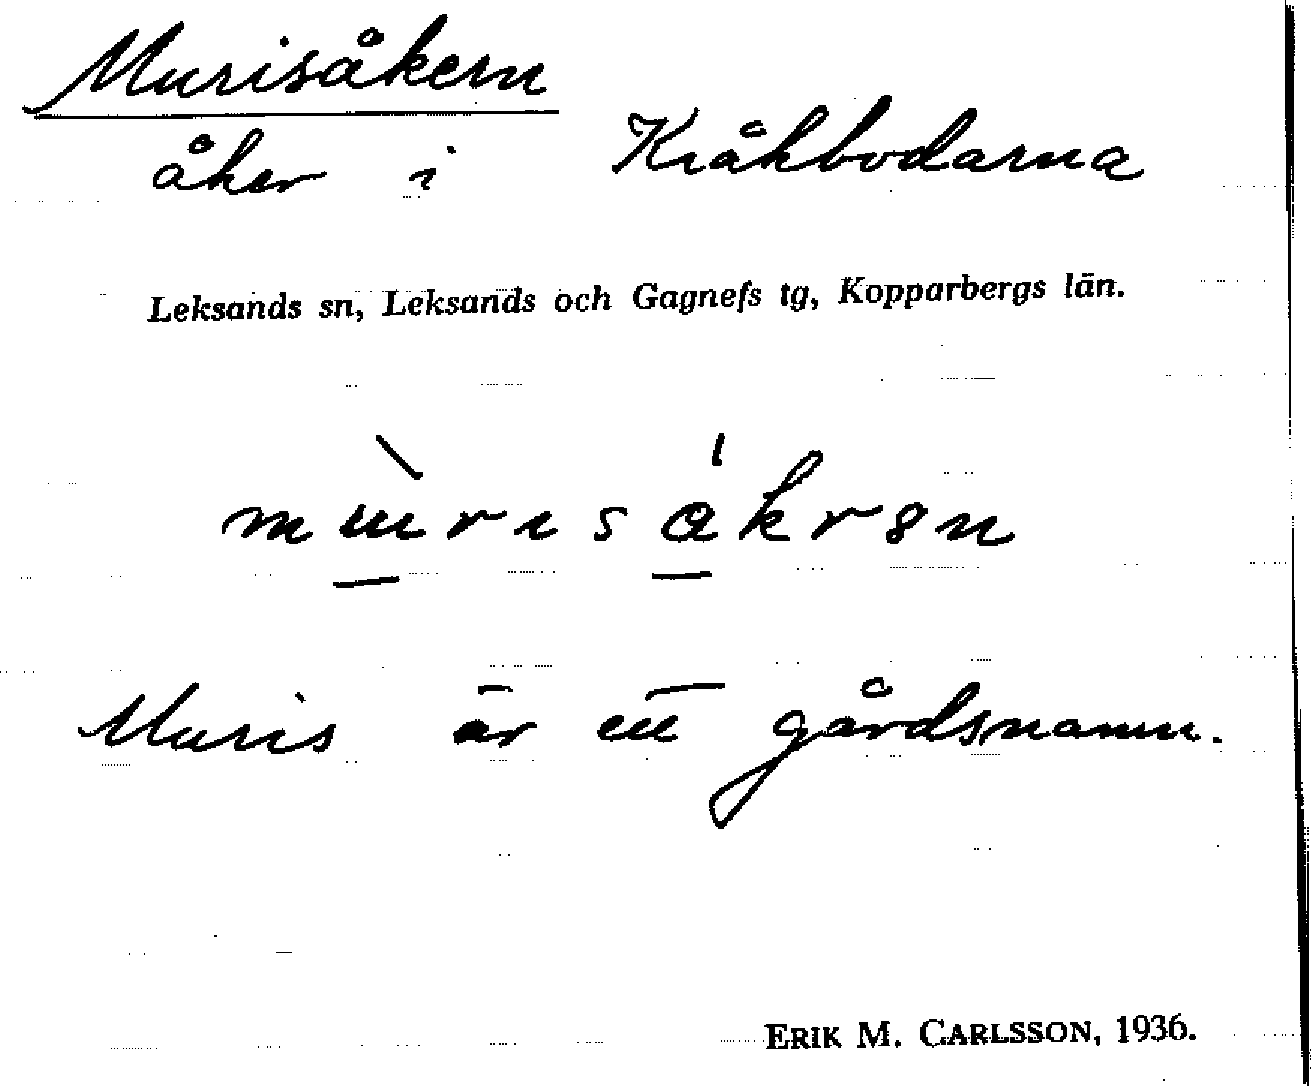 Murisåkern
åker i Kråkbodarna
Leksands sn, Leksands och Gagnefs tg, Kopparbergs län.
Muris är ett gårdsnamn.
ERIK M. CARLSSON, 1936.